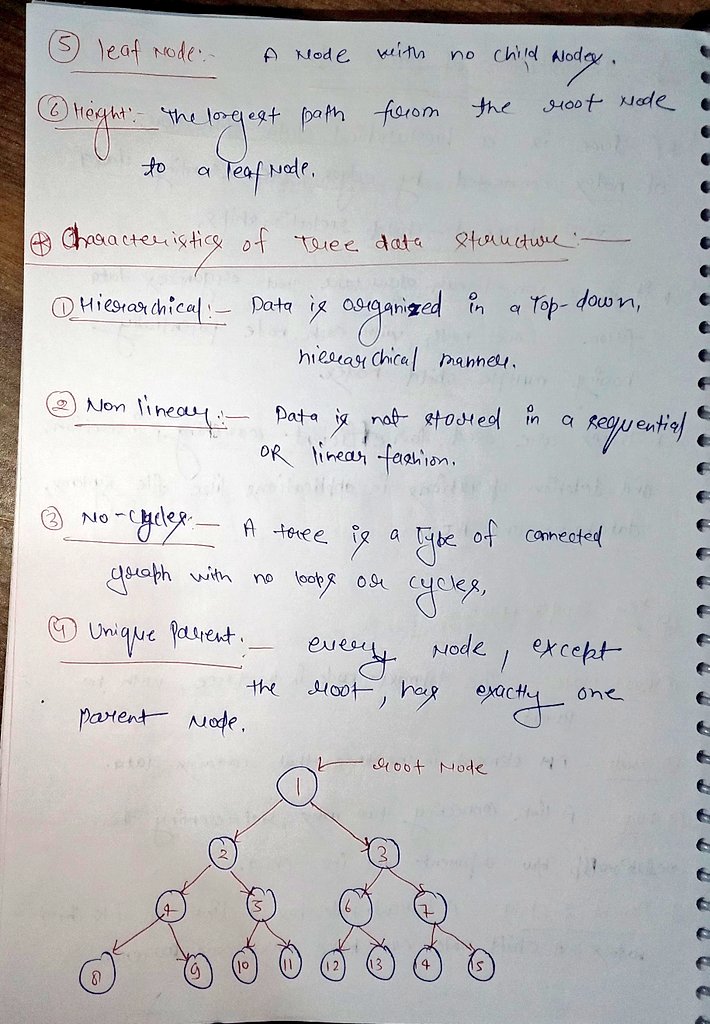 ⑤ leaf Node:- A Node with no child Nodes.
⑥ Height:- The longest path from the root Node
to a leaf Node.
⊕ Characteristics of Tree data structure:—
① Hierarchical:- Data is organized in a Top-down,
hierarchical manner.
② Non linear:- Data is not stored in a sequential
OR linear fashion.
③ No-cycles:- A tree is a Type of connected
graph with no loops or cycles,
④ Unique Parent:- every Node, except
the root, has exactly one
Parent Node.
← root Node
1
2 3
4 5 6 7
8 9 10 11 12 13 14 15